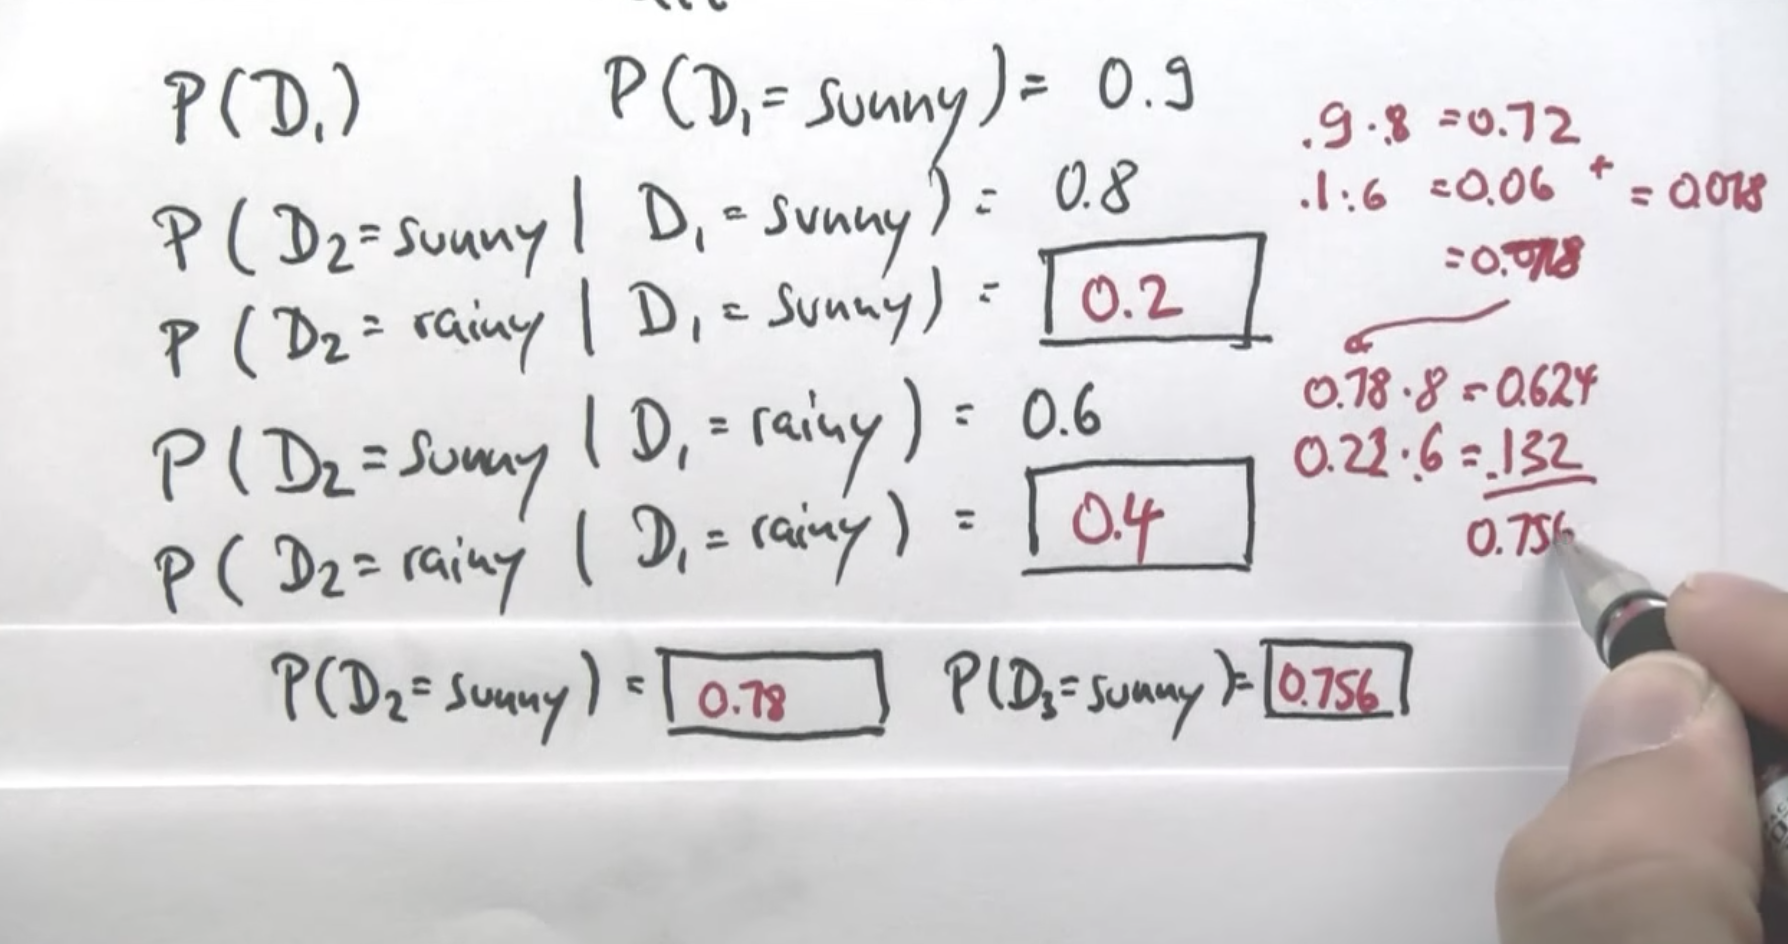 P(D₁) P(D₁ = sunny) = 0.9
P(D₂ = sunny | D₁ = sunny) = 0.8
P(D₂ = rainy | D₁ = sunny) = 0.2
P(D₂ = sunny | D₁ = rainy) = 0.6
P(D₂ = rainy | D₁ = rainy) = 0.4
P(D₂ = sunny) = 0.78 P(D₃ = sunny) = 0.756
.9 · .8 = 0.72
.1 · .6 = 0.06 +
0.78 · .8 = 0.624
0.22 · .6 = .132
0.756